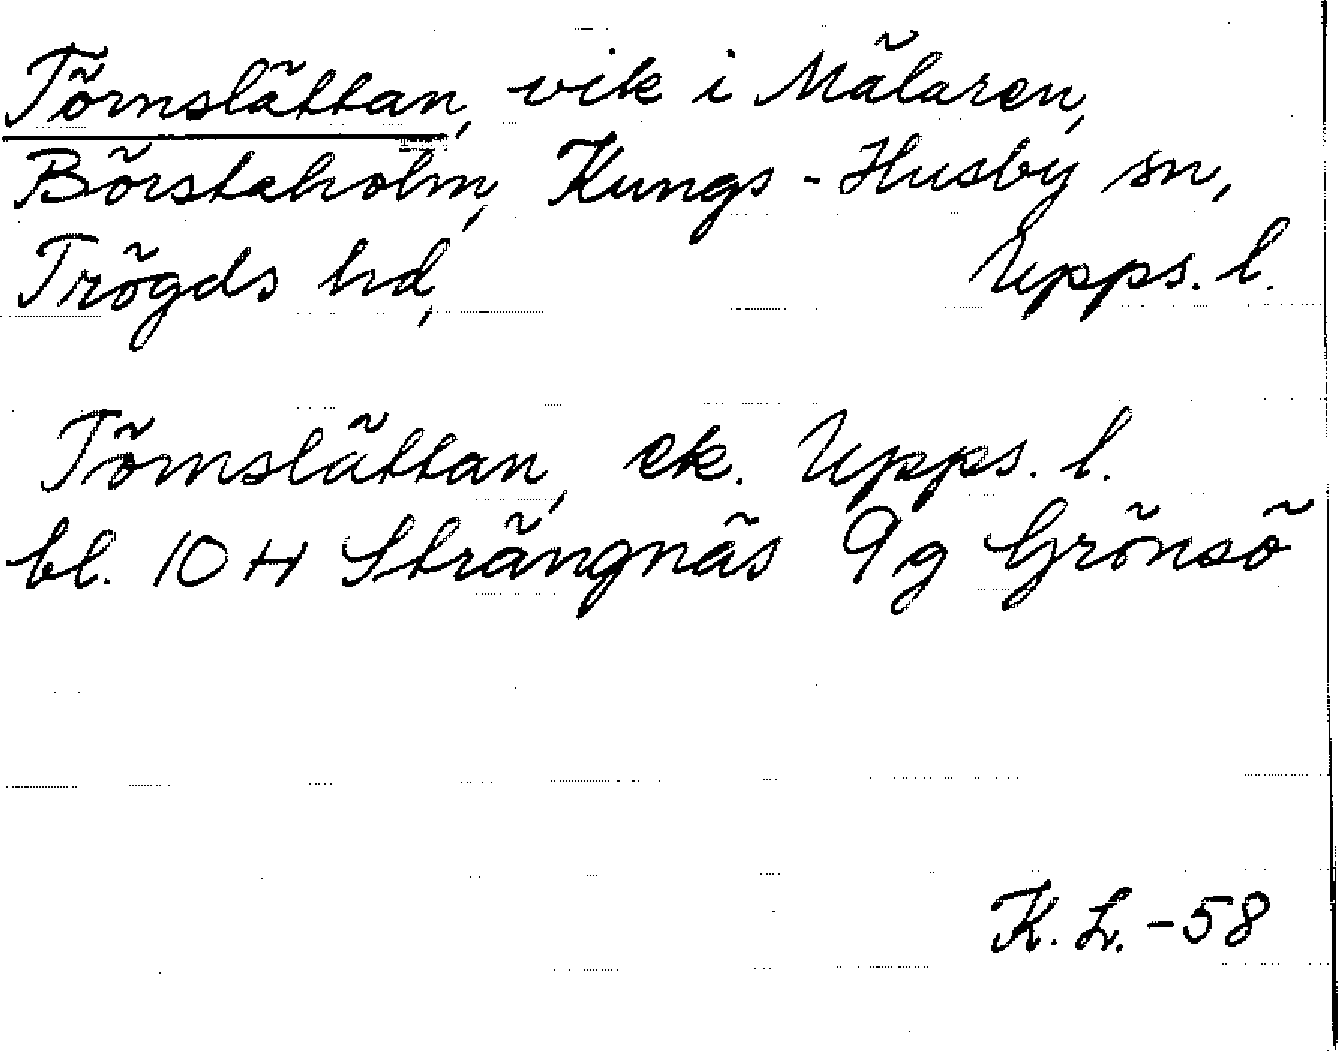 Tömslättan, vik i Mälaren,
Börsteholm, Kungs-Husby sn,
Trögds hd, Upps. l.
Tömslättan, ek. Upps. l.
bl. 10 H Strängnäs 9g Grönsö
K. L. -58